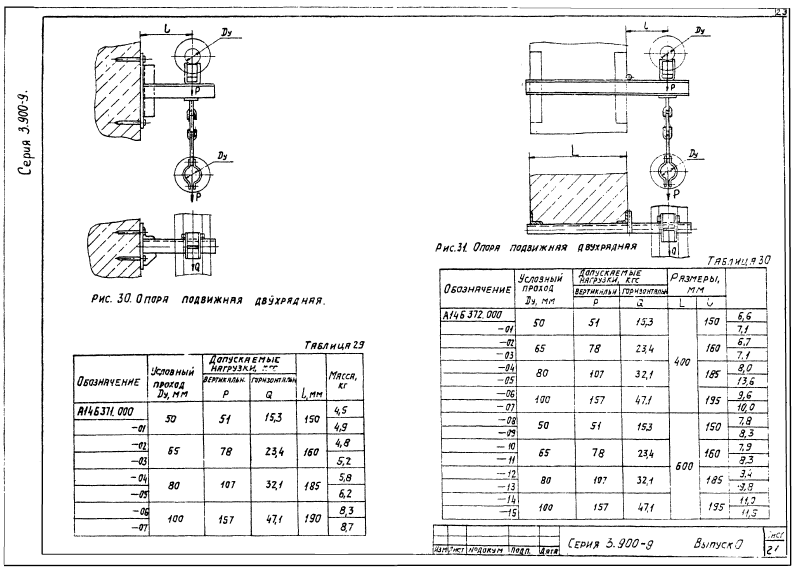 23
Серия 3.900-9.
L
Ду
P
Ду
P
Q
Рис. 30. Опора подвижная двухрядная.
L
Ду
P
L
Ду
P
Q
Рис.31. Опора подвижная двухрядная
Таблица 29
Обозначение
Условный проход Ду, мм
Допускаемые нагрузки, кгс
вертикальн. P
горизонтальн Q
L, мм
Масса, кг
А14Б371.000 50 51 15,3 150 4,5
-01 4,9
-02 65 78 23,4 160 4,8
-03 5,2
-04 80 107 32,1 185 5,8
-05 6,2
-06 100 157 47,1 190 8,3
-07 8,7
Таблица 30
Обозначение
Условный проход Ду, мм
Допускаемые нагрузки, кгс
вертикальн P
горизонтальн Q
Размеры, мм
L
А14Б372.000 50 51 15,3 400 150 6,6
-01 7,1
-02 65 78 23,4 160 6,7
-03 7,1
-04 80 107 32,1 185 8,0
-05 13,6
-06 100 157 47,1 195 9,6
-07 10,0
-08 50 51 15,3 600 150 7,8
-09 8,3
-10 65 78 23,4 160 7,9
-11 8,3
-12 80 107 32,1 185 9,4
-13 9,8
-14 100 157 47,1 195
-15
Изм. Лист №докум Подп. Дата
Серия 3.900-9 Выпуск 0
Лист